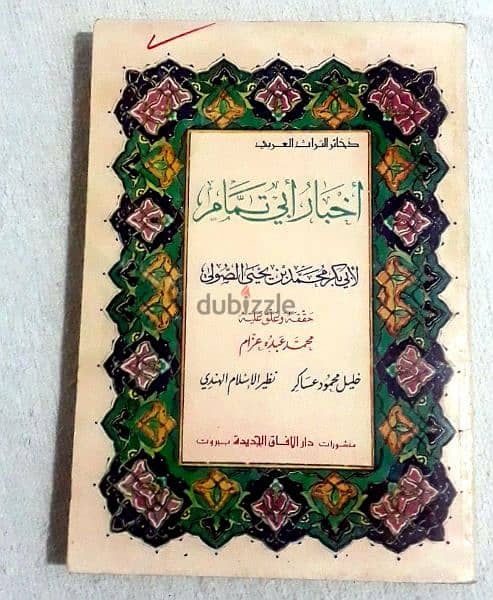 ذخائر التراث العربي
أخبار أبي تمّام
لأبي بكر محمد بن يحيى الصّولي
dubizzle
حققه وعلق عليه
محمد عبده عزام
خليل محمود عساكر نظير الإسلام الهندي
منشورات دار الآفاق الجديدة بيروت